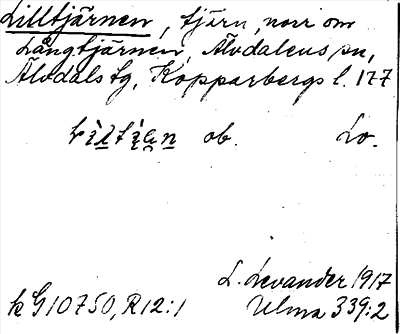 Lilltjärnen, tjärn, norr om
Långtjärnen, Älvdalens sn,
Älvdals tg, Kopparbergs l. 177
ob. Lo.
L. Levander 1917
k G10750, R12:1 Ulma 339:2